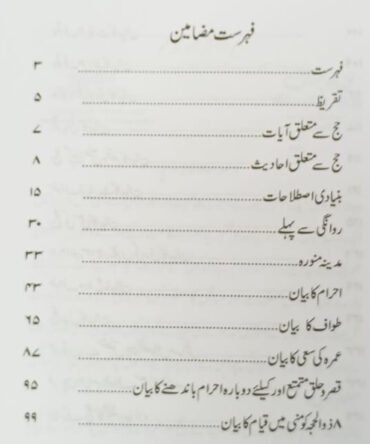 فہرست مضامین
فہرست ........ ۳
تقریظ ........ ۵
حج سے متعلق آیات ........ ۷
حج سے متعلق احادیث ........ ۸
بنیادی اصطلاحات ........ ۱۵
روانگی سے پہلے ........ ۳۰
مدینہ منورہ ........ ۳۳
احرام کا بیان ........ ۴۳
طواف کا بیان ........ ۶۵
عمرہ کی سعی کا بیان ........ ۸۷
قصر و حلق متمتع اور کیلئے دوبارہ احرام باندھنے کا بیان ........ ۹۵
۸ ذوالحجہ کو منیٰ میں قیام کا بیان ........ ۹۹